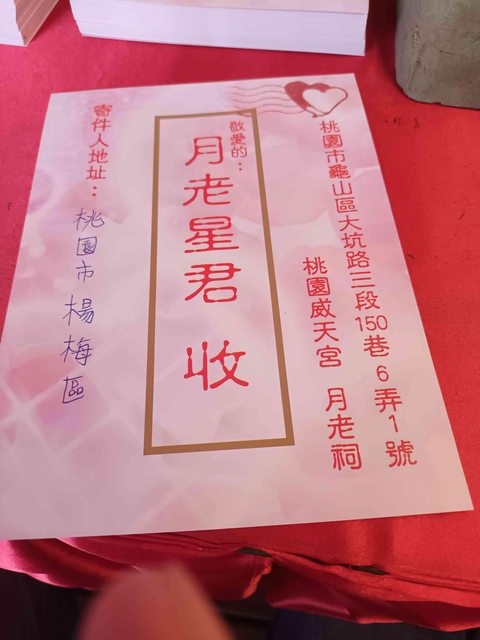 桃園市龜山區大坑路三段150巷6弄1號
桃園威天宮 月老祠
敬愛的：
月老星君 收
寄件人地址：
桃園市楊梅區